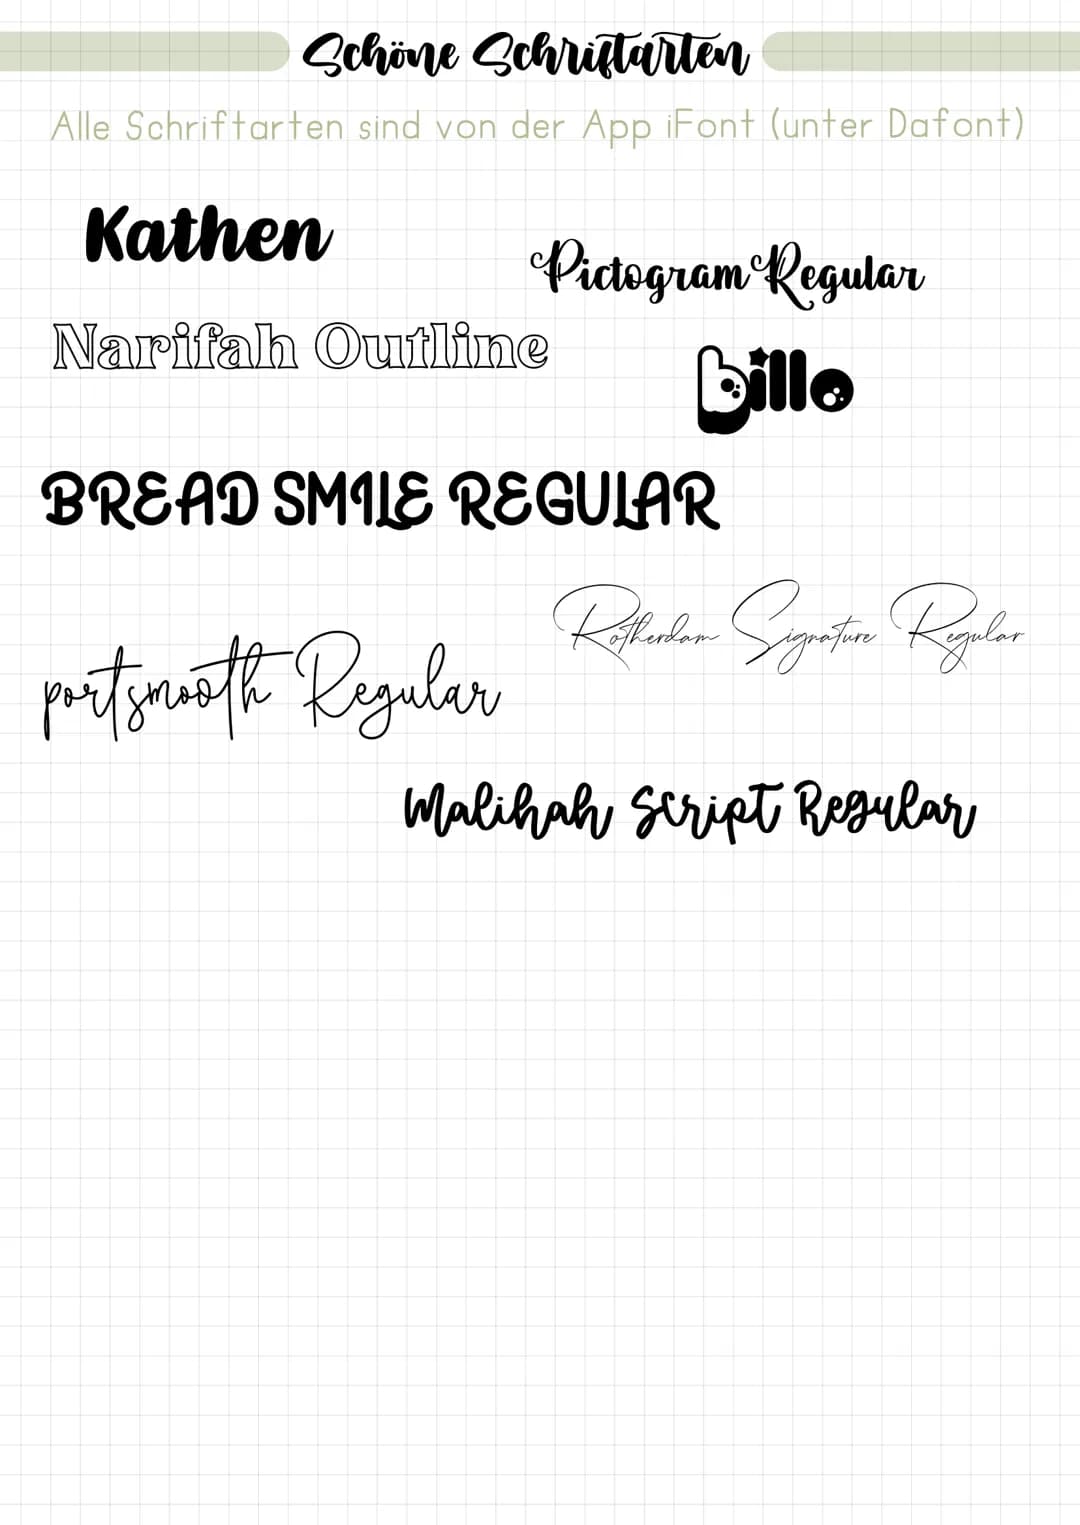 Schöne Schriftarten
Alle Schriftarten sind von der App iFont (unter Dafont)
Kathen
Pictogram Regular
Narifah Outline
billo
BREAD SMILE REGULAR
Rotherdam Signature Regular
portsmooth Regular
Malihah Script Regular